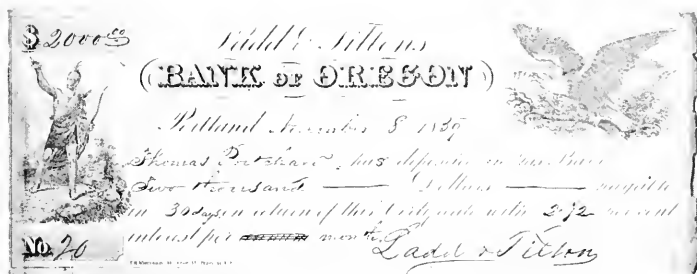 $ 2000 00
Ladd & Tiltons
(BANK OF OREGON)
Portland November 8 1859
Thomas Pritchard, has deposited in this Bank
Two thousand — Dollars — payable
in 30 days on return of this Certificate with 2 1/2 per cent
interest per month
No. 20
Ladd & Tilton